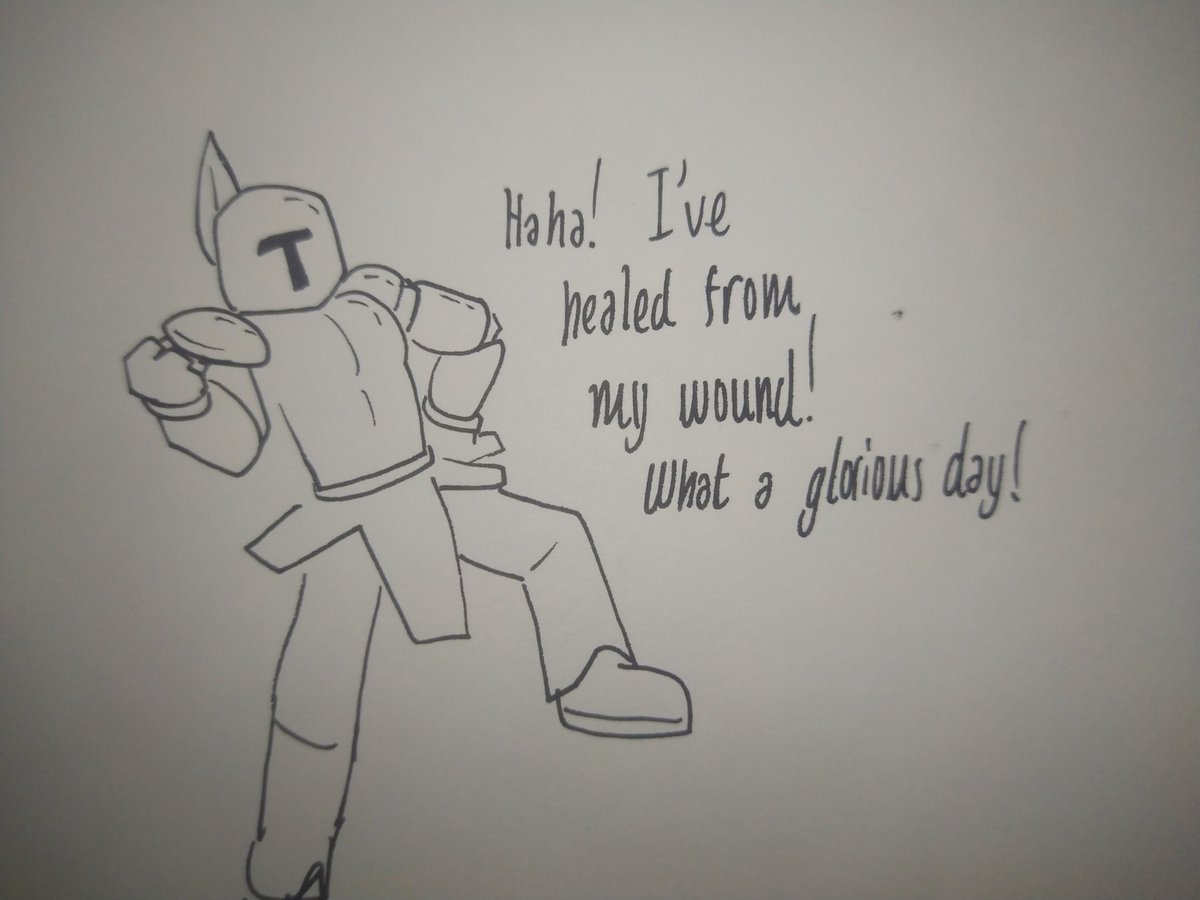 Haha! I've
healed from
my wound!
What a glorious day!